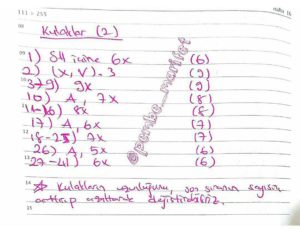 111 > 255
Kulaklar (2)
1) SH içine 6x (6)
2) (x, v). 3 (9)
3-9) 9x (9)
10) A, 7x (8)
11-16) 8x (8)
17) A, 6x (7)
18-25) 7x (7)
26) A, 5x (6)
27-41) 6x (6)
* Kulakların uzunluğunu, son sıranın sayısını
arttırıp azaltarak değiştirebilirsiniz.